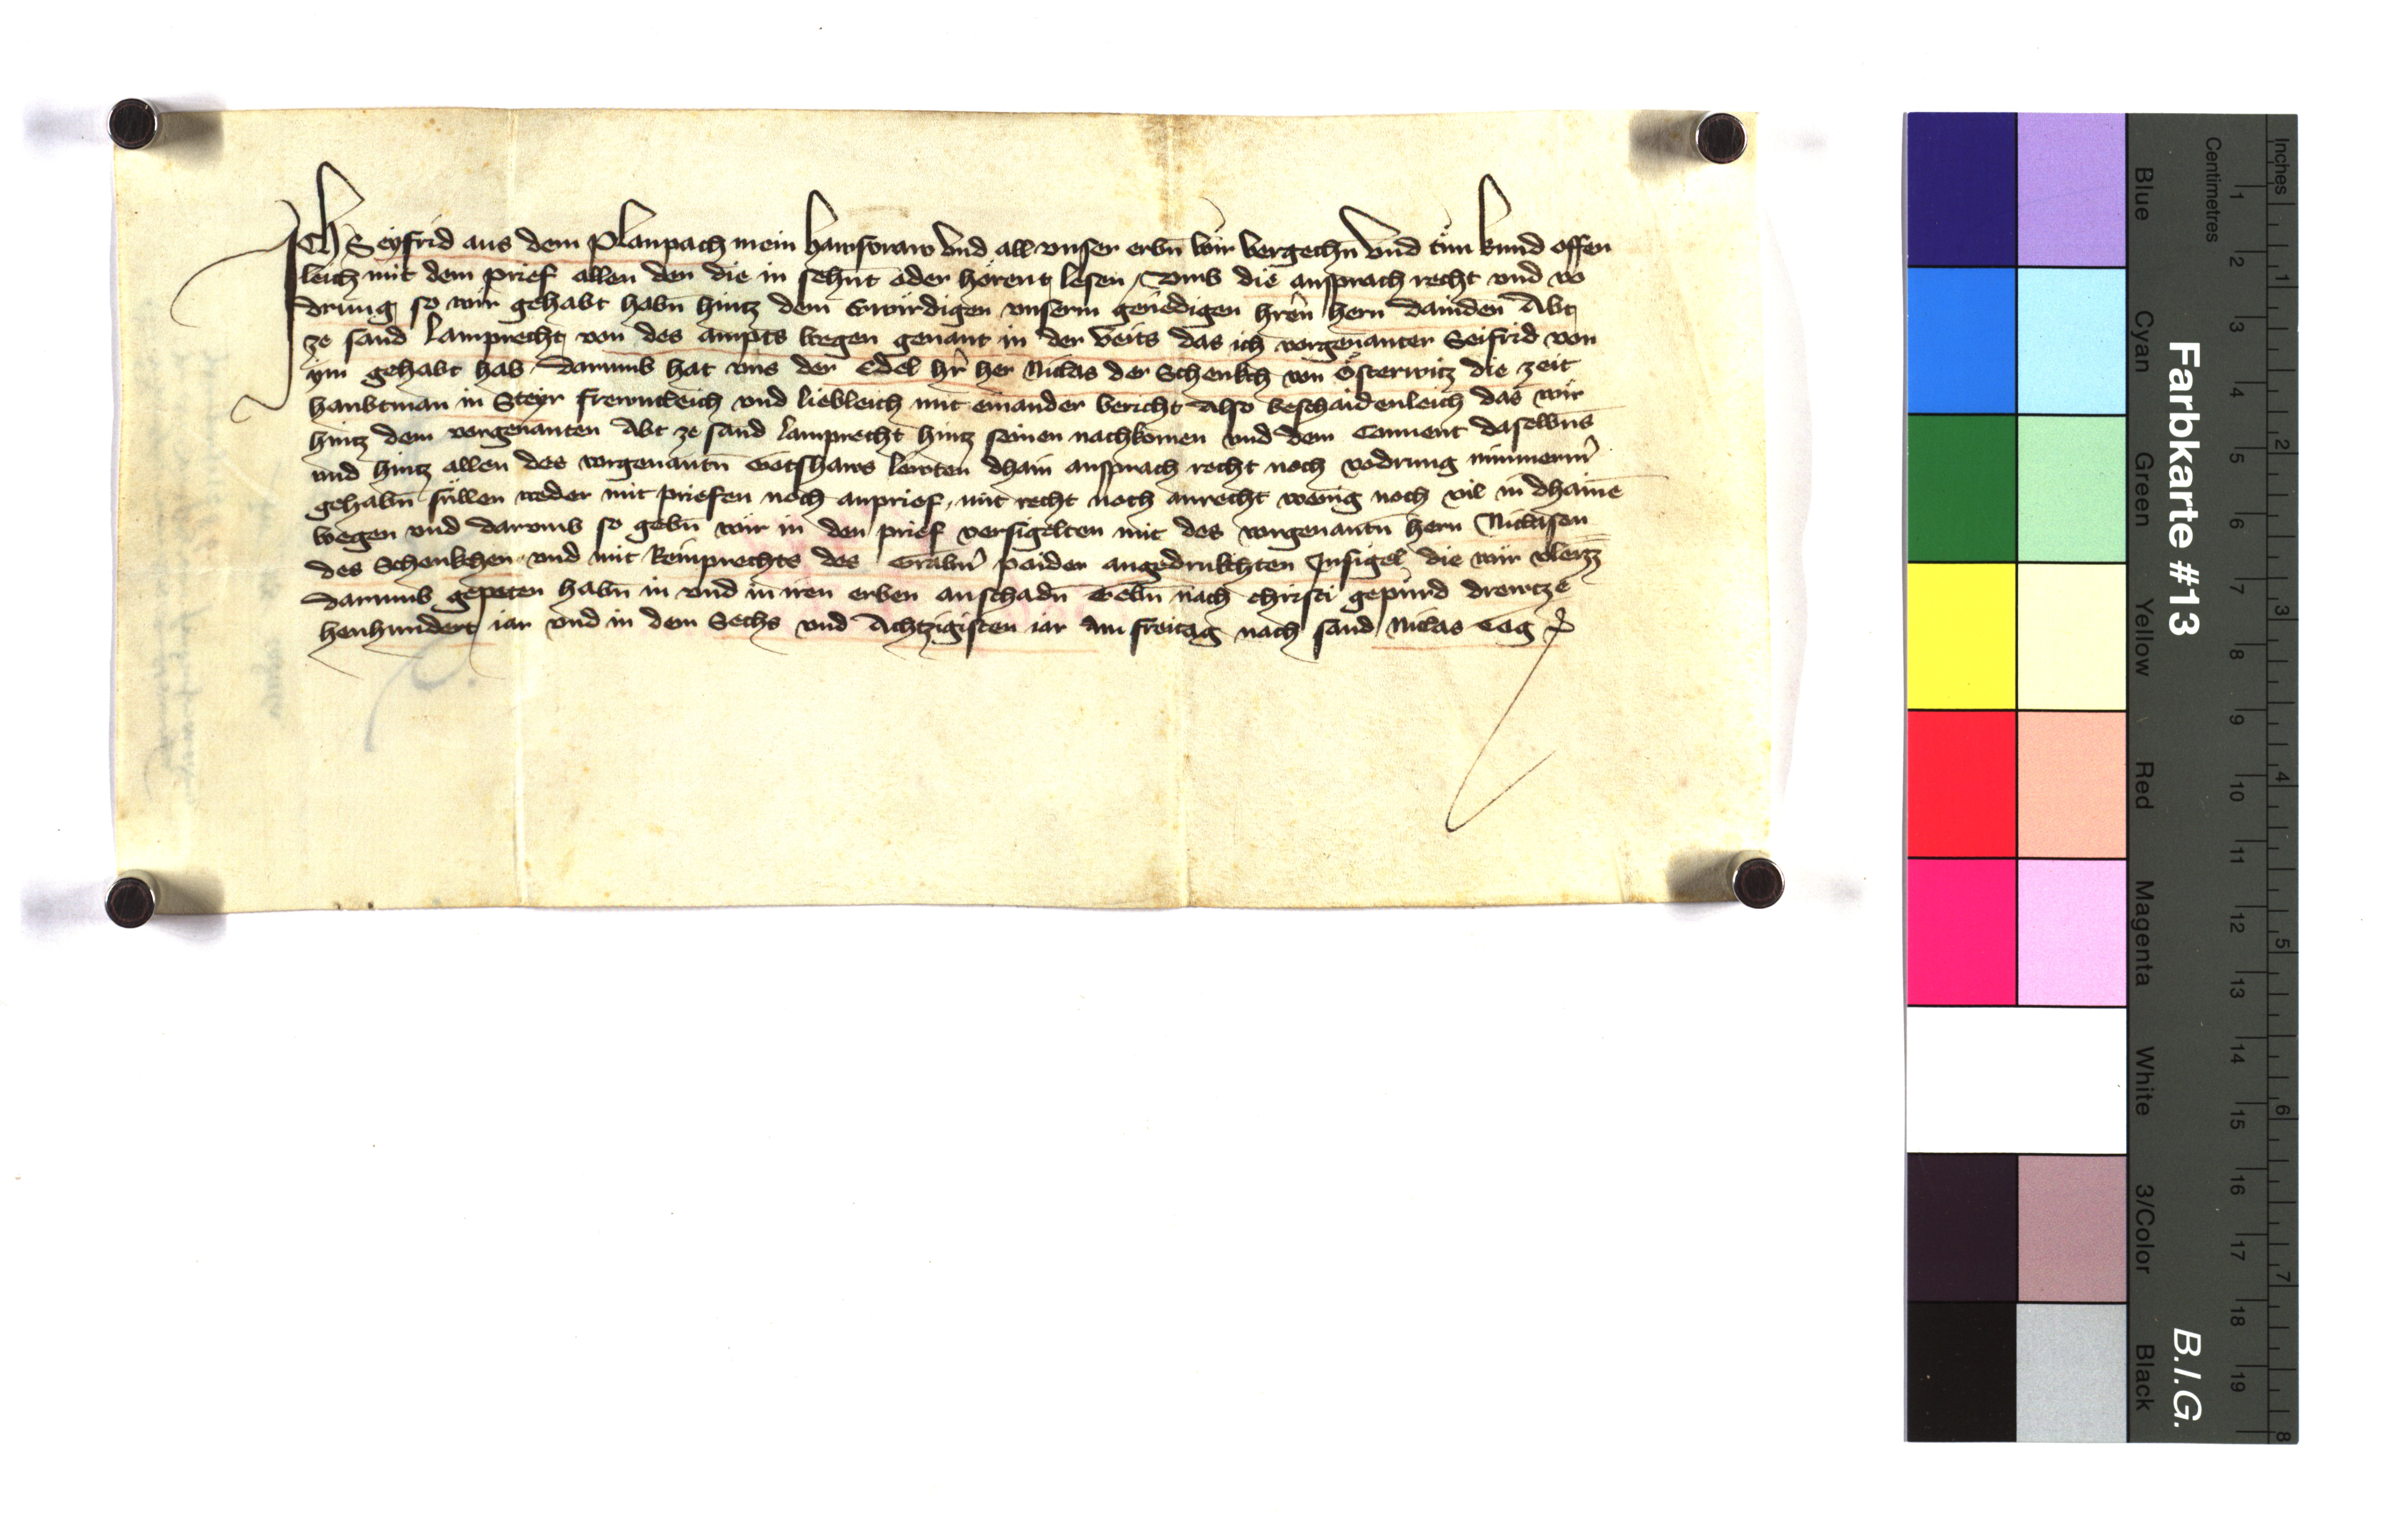 Ich Seyfrid aus dem Planpach mein hawsvraw vnd all vnser erbn̄ wir vergechn̄ vnd tün kund offen
leich mit dem prief allen den die in sehnt oder hörent lesen / vmb die ansprach recht vnd vo
drung so wir gehabt habn̄ hintz dem Erwirdigen vnserm genedigen hr̄en hern Dauiden Abt
ze sand Lamprecht von des ampts wegen genant in der Veits das ich vorgenanter Seifrid von
ym gehabt hab Darumb hat vns der Edel hr̄ her Niclas der Schenkch von Österwitz die zeit
haubtman in Steyr frewntleich vnd liebleich mit einander bericht Also beschaidenleich das wir
hintz dem vorgenanten Abt ze sand Lamprecht hintz seinen nachkomen vnd dem Conuent daselbns
vnd hintz allen des vorgenantn̄ Gotshaws lewten dhain ansprach recht noch vodrung nimmerm̄
gehabn̄ süllen weder mit priefen noch anprief, mit recht noch anrecht wenig noch vil in dhainē
wegen vnd darvmb so gebn̄ wir in den prief versigelten mit des vorgenantn̄ hern Niclasen
des Schenkchen vnd mit Reinprechts des Grabn̄ paider angedrukchten Insigel die wir vleizz
Darumb gepeten habn̄ in vnd in iren erben anschadn̄ Gebn̄ nach christi gepürd drewtze
henhundert iar vnd in dem Sechs vnd Achtzigisten iar Am freitag nach sand Niclas Tag
Farbkarte #13
B.I.G.
Inches
Centimetres
1 2 3 4 5 6 7 8
1 2 3 4 5 6 7 8 9 10 11 12 13 14 15 16 17 18 19
Blue
Cyan
Green
Yellow
Red
Magenta
White
3/Color
Black